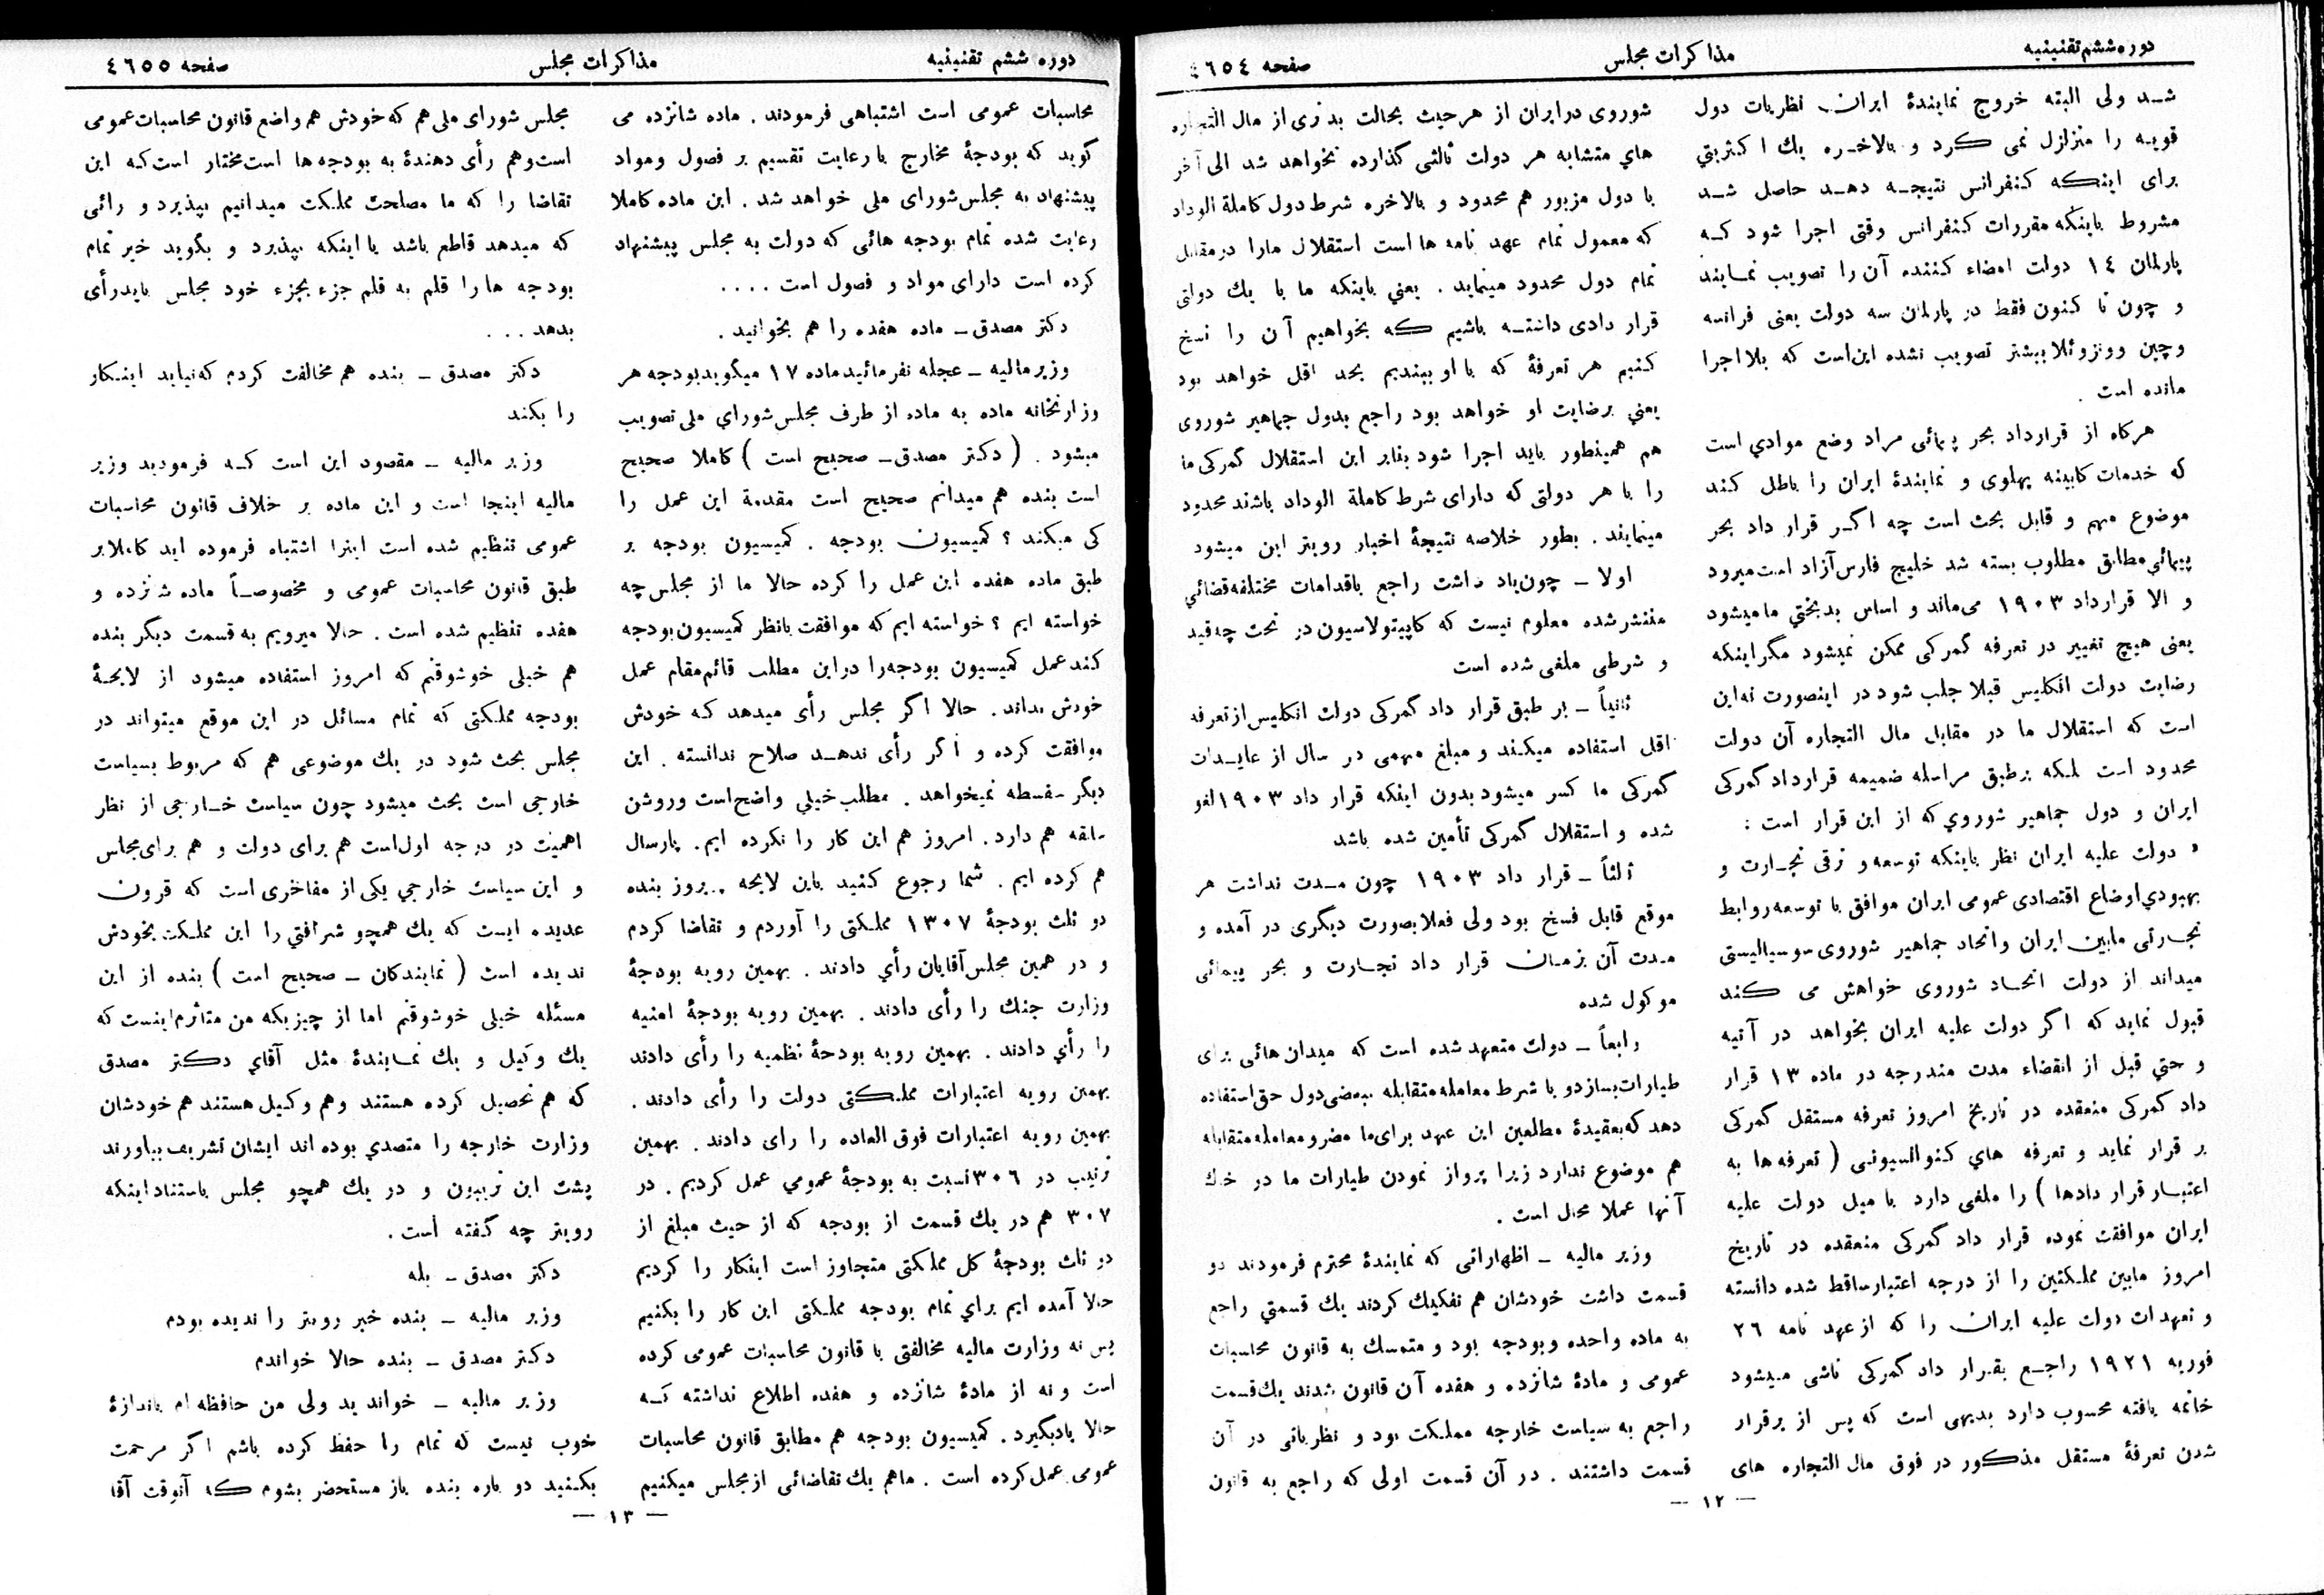 دوره ششم تقنینیه
مذاکرات مجلس
صفحه ٤٦٥٤
شد ولی البته خروج نمایندهٔ ایران نظریات دول
قویه را متزلزل نمی کرد و بالاخره یك اکثریتي
برای اینکه کنفرانس نتیجه دهد حاصل شد
مشروط باینکه مقررات کنفرانس وقتی اجرا شود که
پارلمان ١٤ دولت امضاء کننده آن را تصویب نمایند
و چون تا کنون فقط در پارلمان سه دولت یعنی فرانسه
وچین وونزوئلا بیشتر تصویب نشده این‌است که بلا اجرا
مانده است .
هرگاه از قرارداد بحر پیمائی مراد وضع موادي است
که خدمات کابینه پهلوی و نمایندهٔ ایران را باطل کند
موضوع مهم و قابل بحث است چه اگر قرار داد بحر
پیمائي مطابق مطلوب بسته شد خلیج فارس آزاد است میرود
و الا قرارداد ١٩٠٣ می‌ماند و اساس بدبختي ما میشود
یعنی هیچ تغییر در تعرفه گمرکی ممکن نمیشود مگر اینکه
رضایت دولت انگلیس قبلا جلب شود در اینصورت نه این
است که استقلال ما در مقابل مال التجاره آن دولت
محدود است بلکه برطبق مراسله ضمیمه قرارداد گمرکی
ایران و دول جماهیر شوروي که از این قرار است :
« دولت علیه ایران نظر باینکه توسعه و ترقی تجارت و
بهبودي اوضاع اقتصادی عمومی ایران موافق با توسعه روابط
تجارتی مابین ایران واتحاد جماهیر شوروی سوسیالیستی
میداند از دولت اتحاد شوروی خواهش می کند
قبول نماید که اگر دولت علیه ایران بخواهد در آتیه
و حتي قبل از انقضاء مدت مندرجه در ماده ١٣ قرار
داد گمرکی منعقده در تاریخ امروز تعرفه مستقل گمرکی
بر قرار نماید و تعرفه هاي کنوانسیونی ( تعرفه ها به
اعتبار قرار دادها ) را ملغی دارد با میل دولت علیه
ایران موافقت نموده قرار داد گمرکی منعقده در تاریخ
امروز مابین مملکتین را از درجه اعتبار ساقط شده دانسته
و تعهدات دولت علیه ایران را که از عهد نامه ٢٦
فوریه ١٩٢١ راجع بقرار داد گمرکی ناشی میشود
خاتمه یافته محسوب دارد بدیهی است که پس از برقرار
شدن تعرفهٔ مستقل مذکور در فوق مال التجاره های
شوروی در ایران از هر حیث بحالت بد تری از مال التجاره
هاي متشابه هر دولت ثالثی گذارده نخواهد شد الی آخر
با دول مزبور هم محدود و بالاخره شرط دول کاملة الوداد
که معمول تمام عهد نامه ها است استقلال مارا در مقابل
تمام دول محدود مینماید . یعني باینکه ما با یك دولتی
قرار دادی داشته باشیم که بخواهیم آن را نسخ
کنیم هر تعرفهٔ که با او ببندیم بحد اقل خواهد بود
یعني برضایت او خواهد بود راجع بدول جماهیر شوروی
هم همینطور باید اجرا شود بنابر این استقلال گمرکی ما
را با هر دولتی که دارای شرط کاملة الوداد باشند محدود
مینمایند . بطور خلاصه نتیجهٔ اخبار رویتر این میشود
اولا ـ چون یاد داشت راجع باقدامات مختلفه قضائي
منتشر شده معلوم نیست که کاپیتولاسیون در تحت چه قید
و شرطی ملغی شده است
ثانیاً ـ بر طبق قرار داد گمرکی دولت انگلیس از تعرفه
اقل استفاده میکند و مبلغ مهمی در سال از عایدات
گمرکی ما کسر میشود بدون اینکه قرار داد ١٩٠٣ لغو
شده و استقلال گمرکی تأمین شده باشد
ثالثاً ـ قرار داد ١٩٠٣ چون مدت نداشت هر
موقع قابل فسخ بود ولی فعلا بصورت دیگری در آمده و
مدت آن بزمان قرار داد تجارت و بحر پیمائی
موکول شده
رابعاً ـ دولت متعهد شده است که میدان هائی برای
طیارات بسازد و با شرط معامله متقابله ببعضی دول حق استفاده
دهد که بعقیدهٔ مطلعین این عهد برای ما مضر و معامله متقابله
هم موضوع ندارد زیرا پرواز نمودن طیارات ما در خاك
آنها عملا محال است .
وزیر مالیه ـ اظهاراتی که نمایندهٔ محترم فرمودند دو
قسمت داشت خودشان هم تفکیك کردند یك قسمتي راجع
به ماده واحده و بودجه بود و متمسك به قانون محاسبات
عمومی و مادهٔ شانزده و هفده آن قانون شدند یك قسمت
راجع به سیاست خارجه مملکت بود و نظریاتی در آن
قسمت داشتند . در آن قسمت اولی که راجع به قانون
— ١٢ —
دوره ششم تقنینیه
مذاکرات مجلس
صفحه ٤٦٥٥
محاسبات عمومی است اشتباهی فرمودند . ماده شانزده می
گوید که بودجهٔ مخارج با رعایت تقسیم بر فصول ومواد
پیشنهاد به مجلس شورای ملی خواهد شد . این ماده کاملا
رعایت شده تمام بودجه هائی که دولت به مجلس پیشنهاد
کرده است دارای مواد و فصول است . . . .
دکتر مصدق ـ ماده هفده را هم بخوانید .
وزیر مالیه ـ عجله نفرمائید ماده ١٧ میگوید بودجه هر
وزارتخانه ماده به ماده از طرف مجلس شوراي ملی تصویب
میشود . ( دکتر مصدق ـ صحیح است ) کاملا صحیح
است بنده هم میدانم صحیح است مقدمة این عمل را
کی میکند ؟ کمیسیون بودجه . کمیسیون بودجه بر
طبق ماده هفده این عمل را کرده حالا ما از مجلس چه
خواسته ایم ؟ خواسته ایم که موافقت بانظر کمیسیون بودجه
کند عمل کمیسیون بودجه را در این مطلب قائم مقام عمل
خودش بداند . حالا اگر مجلس رأی میدهد که خودش
موافقت کرده و اگر رأی ندهد صلاح ندانسته . این
دیگر سفسطه نمیخواهد . مطلب خیلي واضح است وروشن
سابقه هم دارد . امروز هم این کار را نکرده ایم . پارسال
هم کرده ایم . شما رجوع کنید باین لایحه بروز بنده
دو ثلث بودجهٔ ١٣٠٧ مملکتی را آوردم و تقاضا کردم
و در همین مجلس آقایان رأي دادند . بهمین رویه بودجهٔ
وزارت جنك را رأی دادند . بهمین رویه بودجهٔ امنیه
را رأي دادند . بهمین رویه بودجهٔ نظمیه را رأی دادند
بهمین رویه اعتبارات مملکتی دولت را رأی دادند .
بهمین رویه اعتبارات فوق العاده را رای دادند . بهمین
ترتیب در ٣٠٦ نسبت به بودجهٔ عمومي عمل کردیم . در
٣٠٧ هم در یك قسمت از بودجه که از حیث مبلغ از
دو ثلث بودجهٔ کل مملکتی متجاوز است اینکار را کردیم
حالا آمده ایم براي تمام بودجه مملکتی این کار را بکنیم
پس نه وزارت مالیه مخالفتی با قانون محاسبات عمومی کرده
است و نه از مادهٔ شانزده و هفده اطلاع نداشته که
حالا یادبگیرد . کمیسیون بودجه هم مطابق قانون محاسبات
عمومی عمل کرده است . ماهم یك تقاضائی از مجلس میکنیم
مجلس شورای ملی هم که خودش هم واضع قانون محاسبات عمومی
است و هم رأی دهندهٔ به بودجه ها است مختار است که این
تقاضا را که ما مصلحت مملکت میدانیم بپذیرد و رائی
که میدهد قاطع باشد یا اینکه بپذیرد و بگوید خیر تمام
بودجه ها را قلم به قلم جزء بجزء خود مجلس باید رأی
بدهد . . .
دکتر مصدق ـ بنده هم مخالفت کردم که نیاید اینکار
را بکند
وزیر مالیه ـ مقصود این است که فرمودید وزیر
مالیه اینجا است و این ماده بر خلاف قانون محاسبات
عمومی تنظیم شده است اینرا اشتباه فرموده اید کاملا بر
طبق قانون محاسبات عمومی و مخصوصاً ماده شانزده و
هفده تنظیم شده است . حالا میرویم به قسمت دیگر بنده
هم خیلی خوشوقتم که امروز استفاده میشود از لایحهٔ
بودجه مملکتی که تمام مسائل در این موقع میتواند در
مجلس بحث شود در یك موضوعی هم که مربوط بسیاست
خارجی است بحث میشود چون سیاست خارجی از نظر
اهمیت در درجه اول است هم برای دولت و هم برای مجلس
و این سیاست خارجي یکی از مفاخری است که قرون
عدیده ایست که یك همچو شرافتي را این مملکت بخودش
ندیده است ( نمایندگان ـ صحیح است ) بنده از این
مسئله خیلی خوشوقتم اما از چیزیکه من متاثرم اینست که
یك وکیل و یك نمایندهٔ مثل آقاي دکتر مصدق
که هم تحصیل کرده هستند وهم وکیل هستند هم خودشان
وزارت خارجه را متصدي بوده اند ایشان تشریف بیاورند
پشت این تریبون و در یك همچو مجلس باستناد اینکه
رویتر چه گفته است .
دکتر مصدق ـ بله
وزیر مالیه ـ بنده خبر رویتر را ندیده بودم
دکتر مصدق ـ بنده حالا خواندم
وزیر مالیه ـ خواندید ولی من حافظه ام باندازهٔ
خوب نیست که تمام را حفظ کرده باشم اگر مرحمت
بکنید دو باره بنده باز مستحضر بشوم که آنوقت آقا
— ١٣ —